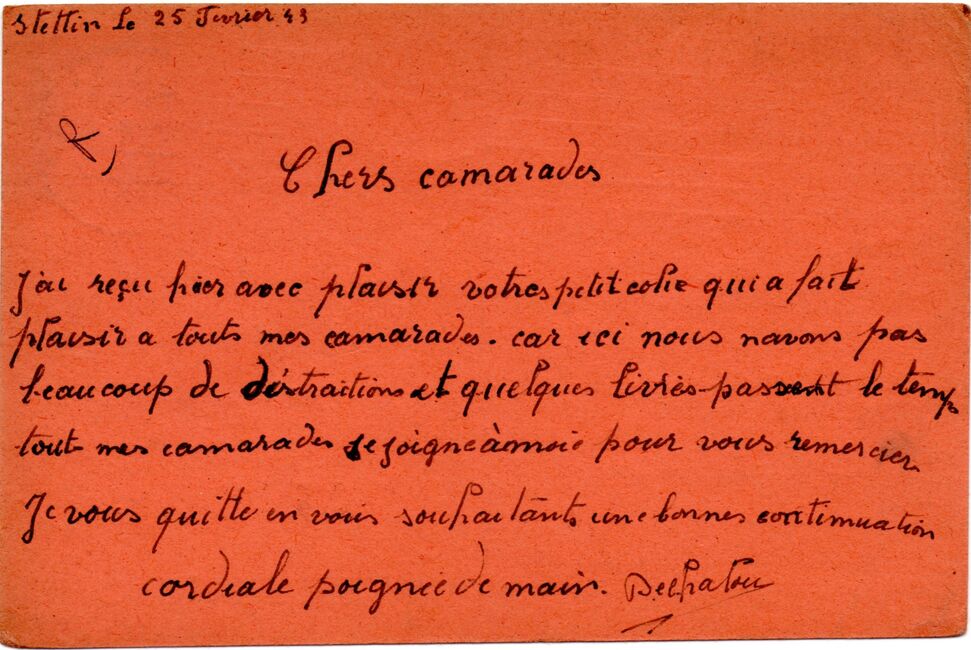 Stettin Le 25 Fevrier 43
Chers camarades
J'ai reçu hier avec plaisir votres petit colie qui a fait
plaisir a touts mes camarades. car ici nous navons pas
beaucoup de distractions et quelques livres passent le temps
tout mes camarades se joigne à moie pour vous remercier.
Je vous quitte en vous souhaitants une bonnes continuation
cordiale poignée de main.